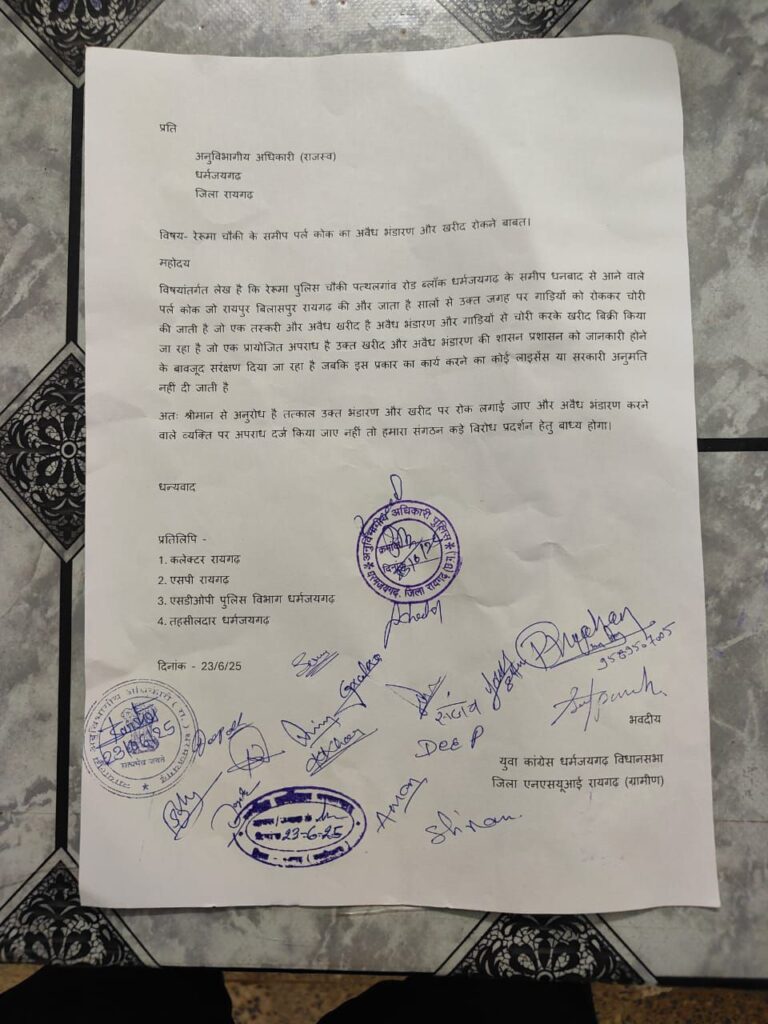 प्रति
अनुविभागीय अधिकारी (राजस्व)
धर्मजयगढ़
जिला रायगढ़
विषय- रेरूमा चौकी के समीप पर्ल कोक का अवैध भंडारण और खरीद रोकने बाबत।
महोदय
विषयांतर्गत लेख है कि रेरूमा पुलिस चौकी पत्थलगांव रोड ब्लॉक धर्मजयगढ़ के समीप धनबाद से आने वाले
पर्ल कोक जो रायपुर बिलासपुर रायगढ़ की और जाता है सालों से उक्त जगह पर गाड़ियों को रोककर चोरी
की जाती है जो एक तस्करी और अवैध खरीद है अवैध भंडारण और गाड़ियों से चोरी करके खरीद बिक्री किया
जा रहा है जो एक प्रायोजित अपराध है उक्त खरीद और अवैध भंडारण की शासन प्रशासन को जानकारी होने
के बावजूद सरंक्षण दिया जा रहा है जबकि इस प्रकार का कार्य करने का कोई लाइसेंस या सरकारी अनुमति
नहीं दी जाती है
अतः श्रीमान से अनुरोध है तत्काल उक्त भंडारण और खरीद पर रोक लगाई जाए और अवैध भंडारण करने
वाले व्यक्ति पर अपराध दर्ज किया जाए नहीं तो हमारा संगठन कड़े विरोध प्रदर्शन हेतु बाध्य होगा।
धन्यवाद
अनुविभागीय अधिकारी पुलिस
धरमजयगढ़, जिला रायगढ़ (छ.ग.)
प्रतिलिपि -
1. कलेक्टर रायगढ़
2. एसपी रायगढ़
3. एसडीओपी पुलिस विभाग धर्मजयगढ़
4. तहसीलदार धर्मजयगढ़
दिनांक - 23/6/25
सत्यमेव जयते
DEEP
भवदीय
युवा कांग्रेस धर्मजयगढ़ विधानसभा
जिला एनएसयूआई रायगढ़ (ग्रामीण)
AMAN
दिनांक 23-6-25